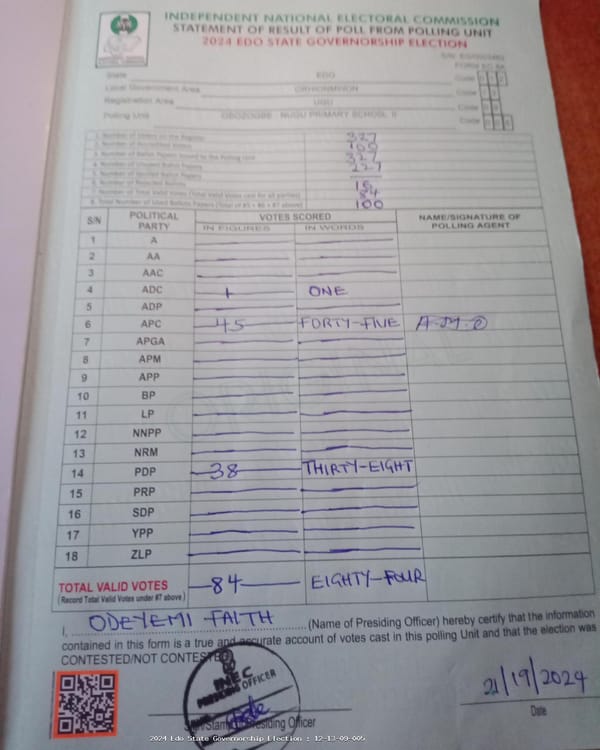 INDEPENDENT NATIONAL ELECTORAL COMMISSION
STATEMENT OF RESULT OF POLL FROM POLLING UNIT
2024 EDO STATE GOVERNORSHIP ELECTION
State EDO Code
Local Government Area ORHIONMWON Code
Registration Area UGU Code
Polling Unit OBOZOGBE - NUGU PRIMARY SCHOOL II Code
1. Number of Voters on the Register 327
2. Number of Accredited Voters 100
3. Number of Ballot Papers Issued to the Polling Unit 327
4. Number of Unused Ballot Papers 227
5. Number of Spoiled Ballot Papers
6. Number of Rejected Ballots
7. Number of Total Valid Votes (Total Valid Votes cast for all parties) 84
8. Total Number of Used Ballot Papers (Total of #5 + #6 + #7 above) 100
S/N POLITICAL PARTY VOTES SCORED NAME/SIGNATURE OF POLLING AGENT
IN FIGURES IN WORDS
1 A
2 AA
3 AAC
4 ADC 1 ONE
5 ADP
6 APC 45 FORTY-FIVE
7 APGA
8 APM
9 APP
10 BP
11 LP
12 NNPP
13 NRM
14 PDP 38 THIRTY-EIGHT
15 PRP
16 SDP
17 YPP
18 ZLP
TOTAL VALID VOTES 84 EIGHTY-FOUR
(Record Total Valid Votes under #7 above)
I, ODEYEMI FAITH (Name of Presiding Officer) hereby certify that the information
contained in this form is a true and accurate account of votes cast in this polling Unit and that the election was
CONTESTED/NOT CONTESTED
INEC
PRESIDING OFFICER
21/19/2024
Sign/Stamp Presiding Officer Date
2024 Edo State Governorship Election : 12-13-09-005